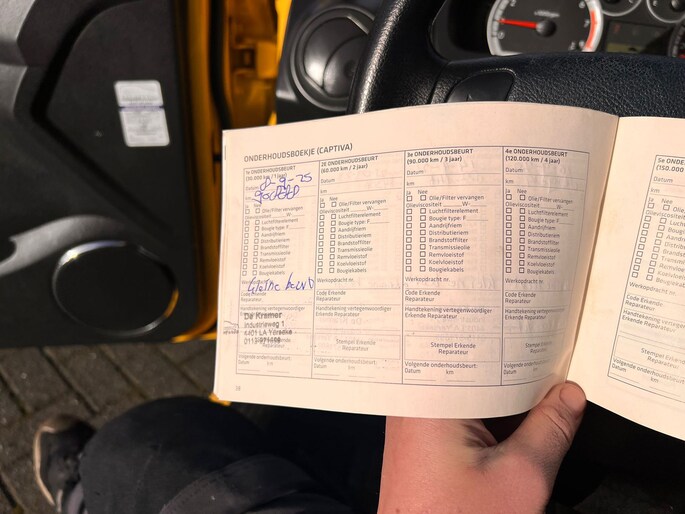 ONDERHOUDSBOEKJE (CAPTIVA)
1e ONDERHOUDSBEURT
(30.000 km / 1 jaar)
Datum 2-9-25
km
Ja Nee
Olie/Filter vervangen
Olieviscositeit W-
Luchtfilterelement
Bougie type: F
Aandrijfriem
Distributieriem
Brandstoffilter
Transmissieolie
Remvloeistof
Koelvloeistof
Bougiekabels
Werkopdracht nr.
Code Erkende
Reparateur
Handtekening vertegenwoordiger
De Kremer
industrieweg 1
4401 LA Yerseke
Volgende onderhoudsbeurt:
Datum km
2E ONDERHOUDSBEURT
(60.000 km / 2 jaar)
Datum:
km
Ja Nee
Olie/Filter vervangen
Olieviscositeit W-
Luchtfilterelement
Bougie type: F
Aandrijfriem
Distributieriem
Brandstoffilter
Transmissieolie
Remvloeistof
Koelvloeistof
Bougiekabels
Werkopdracht nr.
Code Erkende
Reparateur
Handtekening vertegenwoordiger
Erkende Reparateur
Stempel Erkende
Reparateur
Volgende onderhoudsbeurt:
Datum km
3e ONDERHOUDSBEURT
(90.000 km / 3 jaar)
Datum:
km
Ja Nee
Olie/Filter vervangen
Olieviscositeit W-
Luchtfilterelement
Bougie type: F
Aandrijfriem
Distributieriem
Brandstoffilter
Transmissieolie
Remvloeistof
Koelvloeistof
Bougiekabels
Werkopdracht nr.
Code Erkende
Reparateur
Handtekening vertegenwoordiger
Erkende Reparateur
Stempel Erkende
Reparateur
Volgende onderhoudsbeurt:
Datum km
4e ONDERHOUDSBEURT
(120.000 km / 4 jaar)
Datum:
km
Ja Nee
Olie/Filter vervangen
Olieviscositeit W-
Luchtfilterelement
Bougie type: F
Aandrijfriem
Distributieriem
Brandstoffilter
Transmissieolie
Remvloeistof
Koelvloeistof
Bougiekabels
Werkopdracht nr.
Code Erkende
Reparateur
Handtekening vertegenwoordiger
Erkende Reparateur
Stempel Erkende
Reparateur
Volgende onderhoudsbeurt:
Datum km
5e ONDER
(150.000
Datum:
km
Ja Nee
Code Erkende
Reparateur
Handtekening vert
Erkende Reparateur
Stempel Erkende
Reparateur
Volgende onderhoudsbeurt:
Datum km